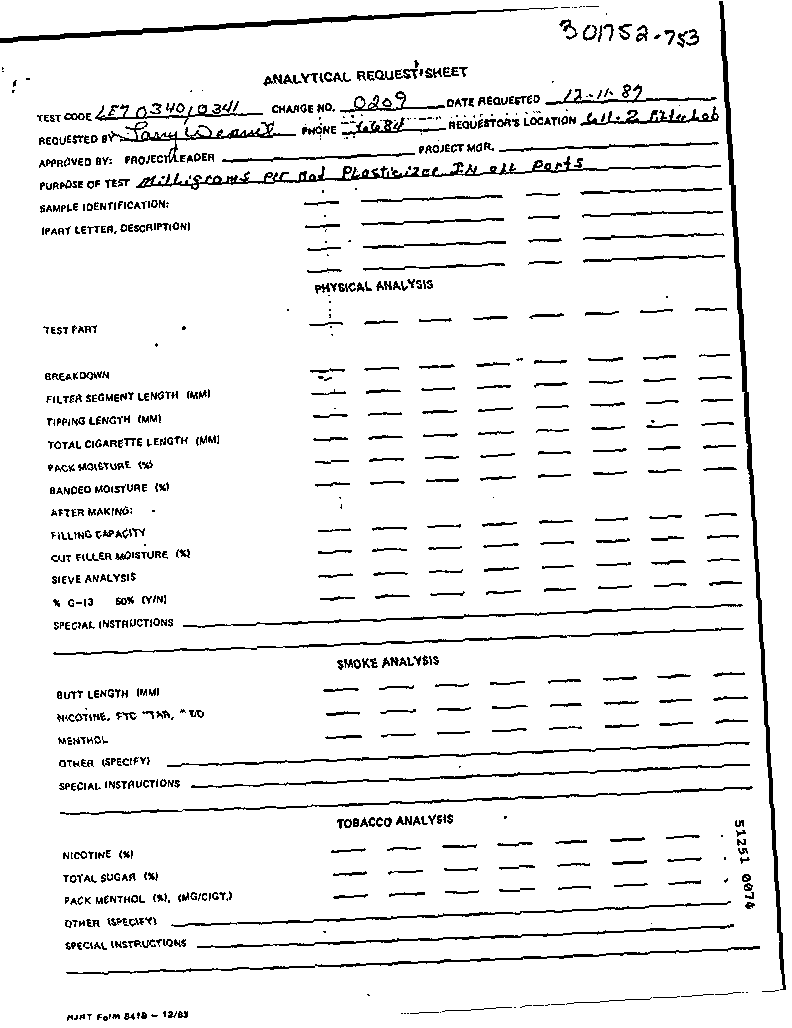 301752-753
ANALYTICAL REQUEST SHEET
TEST CODE LE7 0340,0341 CHARGE NO. 0209 DATE REQUESTED 12-11-87
REQUESTED BY PHONE 6684 REQUESTOR'S LOCATION 611-2 Filter Lab
APPROVED BY: PROJECT LEADER PROJECT MGR.
PURPOSE OF TEST Milligrams Per Rod Plasticizer IN all Parts
SAMPLE IDENTIFICATION:
(PART LETTER, DESCRIPTION)
PHYSICAL ANALYSIS
TEST PART
BREAKDOWN
FILTER SEGMENT LENGTH (MM)
TIPPING LENGTH (MM)
TOTAL CIGARETTE LENGTH (MM)
PACK MOISTURE (%)
BANDED MOISTURE (%)
AFTER MAKING:
FILLING CAPACITY
CUT FILLER MOISTURE (%)
SIEVE ANALYSIS
% G-13 50% (Y/N)
SPECIAL INSTRUCTIONS
SMOKE ANALYSIS
BUTT LENGTH (MM)
NICOTINE, FTC "TAR,"
MENTHOL
OTHER (SPECIFY)
SPECIAL INSTRUCTIONS
TOBACCO ANALYSIS
NICOTINE (%)
TOTAL SUGAR (%)
PACK MENTHOL (%), (MG/CIGT.)
OTHER (SPECIFY)
SPECIAL INSTRUCTIONS
51251 0074
RJRT Form 8418 - 12/83